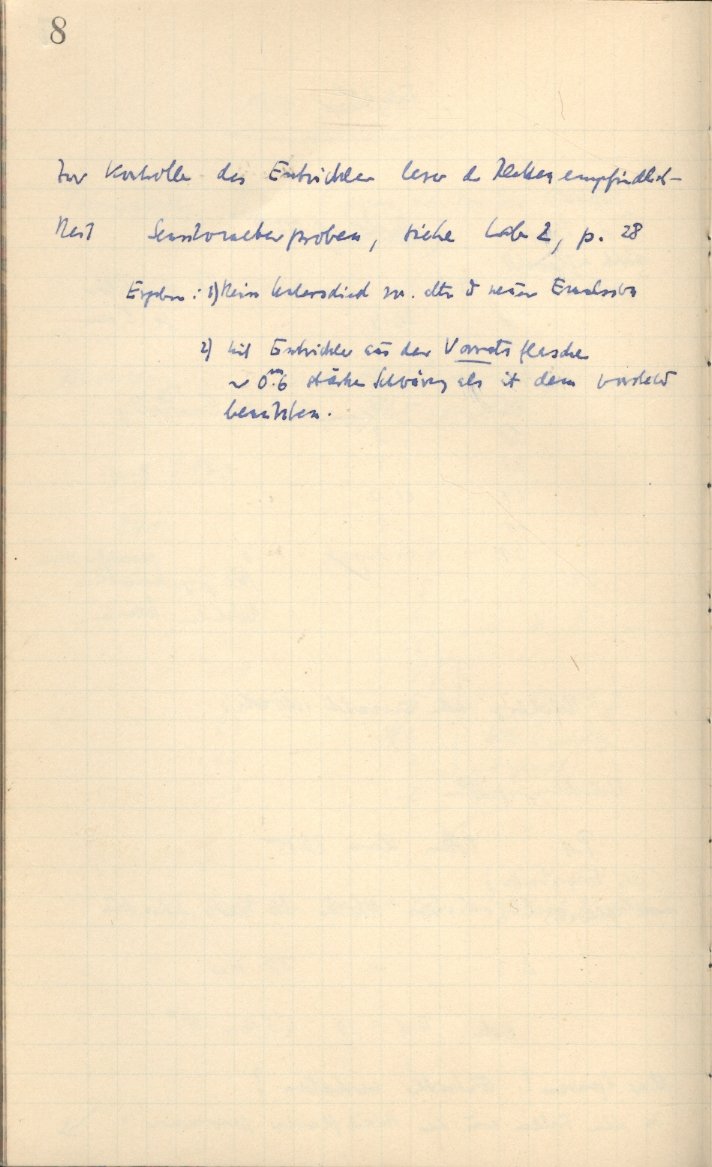 8
Zur Kontrolle des Entwickler bzw. der Plattenempfindlich-
keit Sensitometerproben, siehe Lab 2, p. 28
Ergebn: 1) Kein Unterschied zw. alter & neuer Emulsion
2) mit Entwickler aus der Vorratsflasche
~ 0ᵐ.6 stärkere Schwärzg als mit dem
benützten.